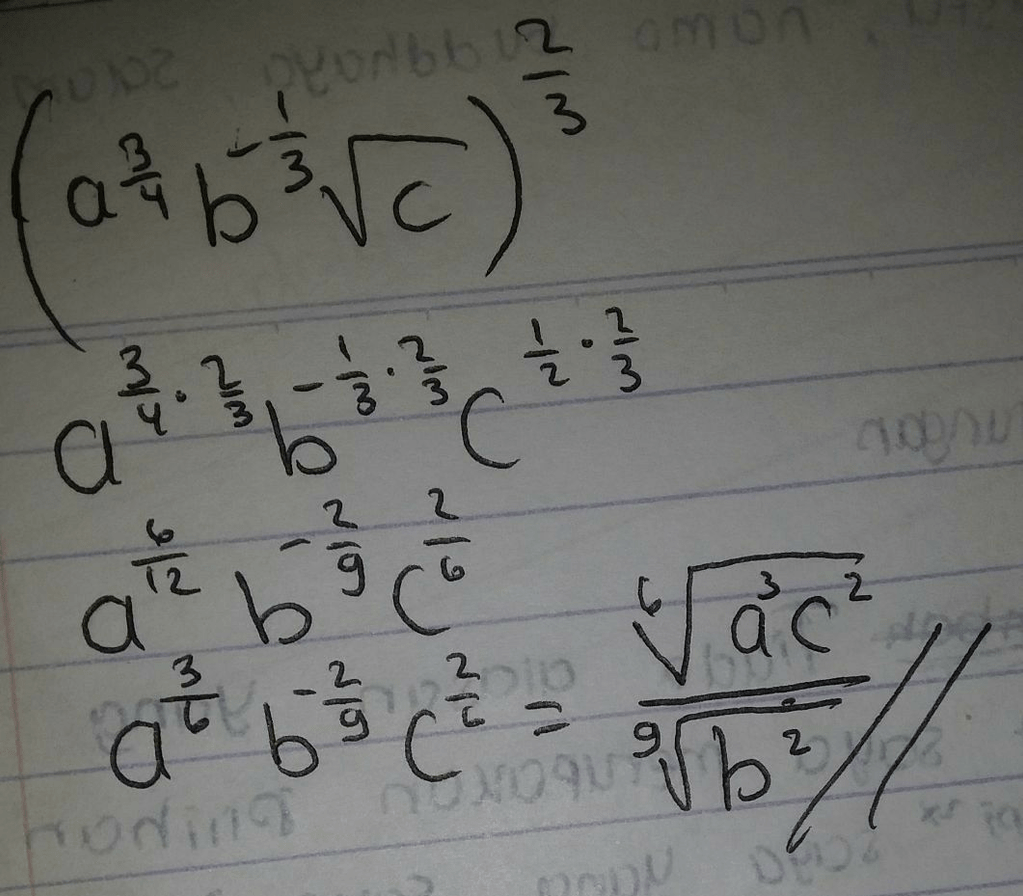 (a^{3/4} b^{-1/3} √c)^{2/3}
a^{3/4 · 2/3} b^{-1/3 · 2/3} c^{1/2 · 2/3}
a^{6/12} b^{-2/9} c^{2/6}
a^{3/6} b^{-2/9} c^{2/6} = ⁶√(a³c²) / ⁹√(b²) //